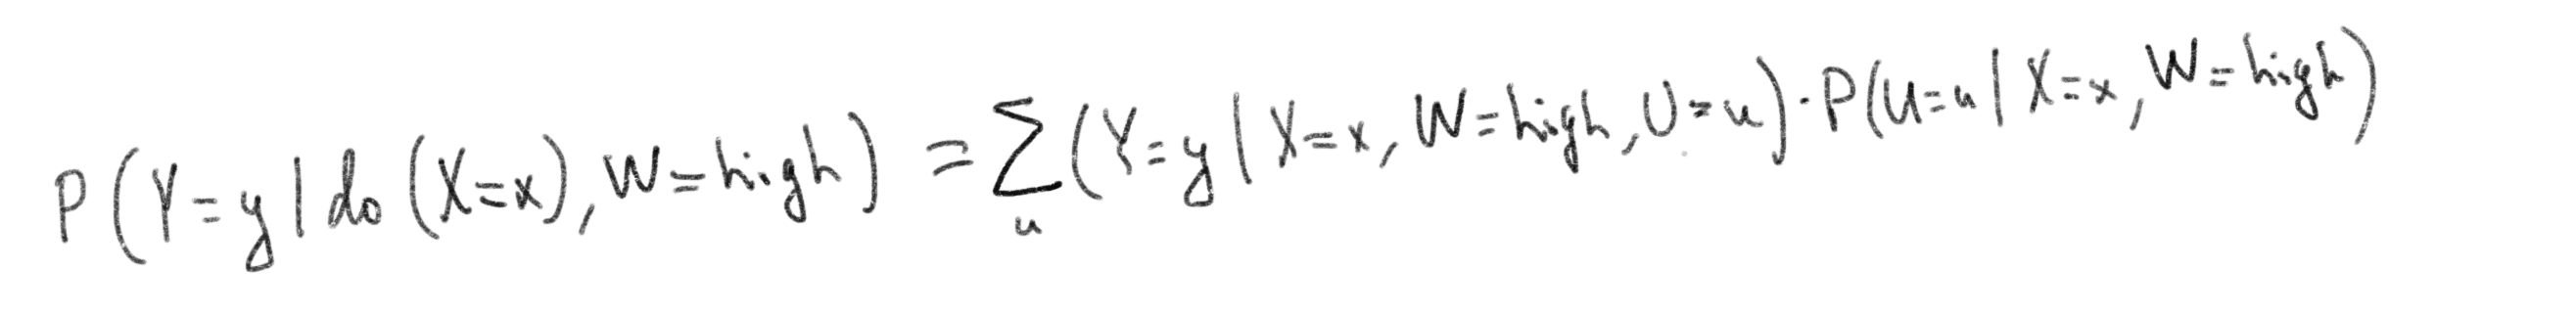 P(Y=y | do(X=x), W=high) = ∑_u (Y=y | X=x, W=high, U=u) · P(U=u | X=x, W=high)